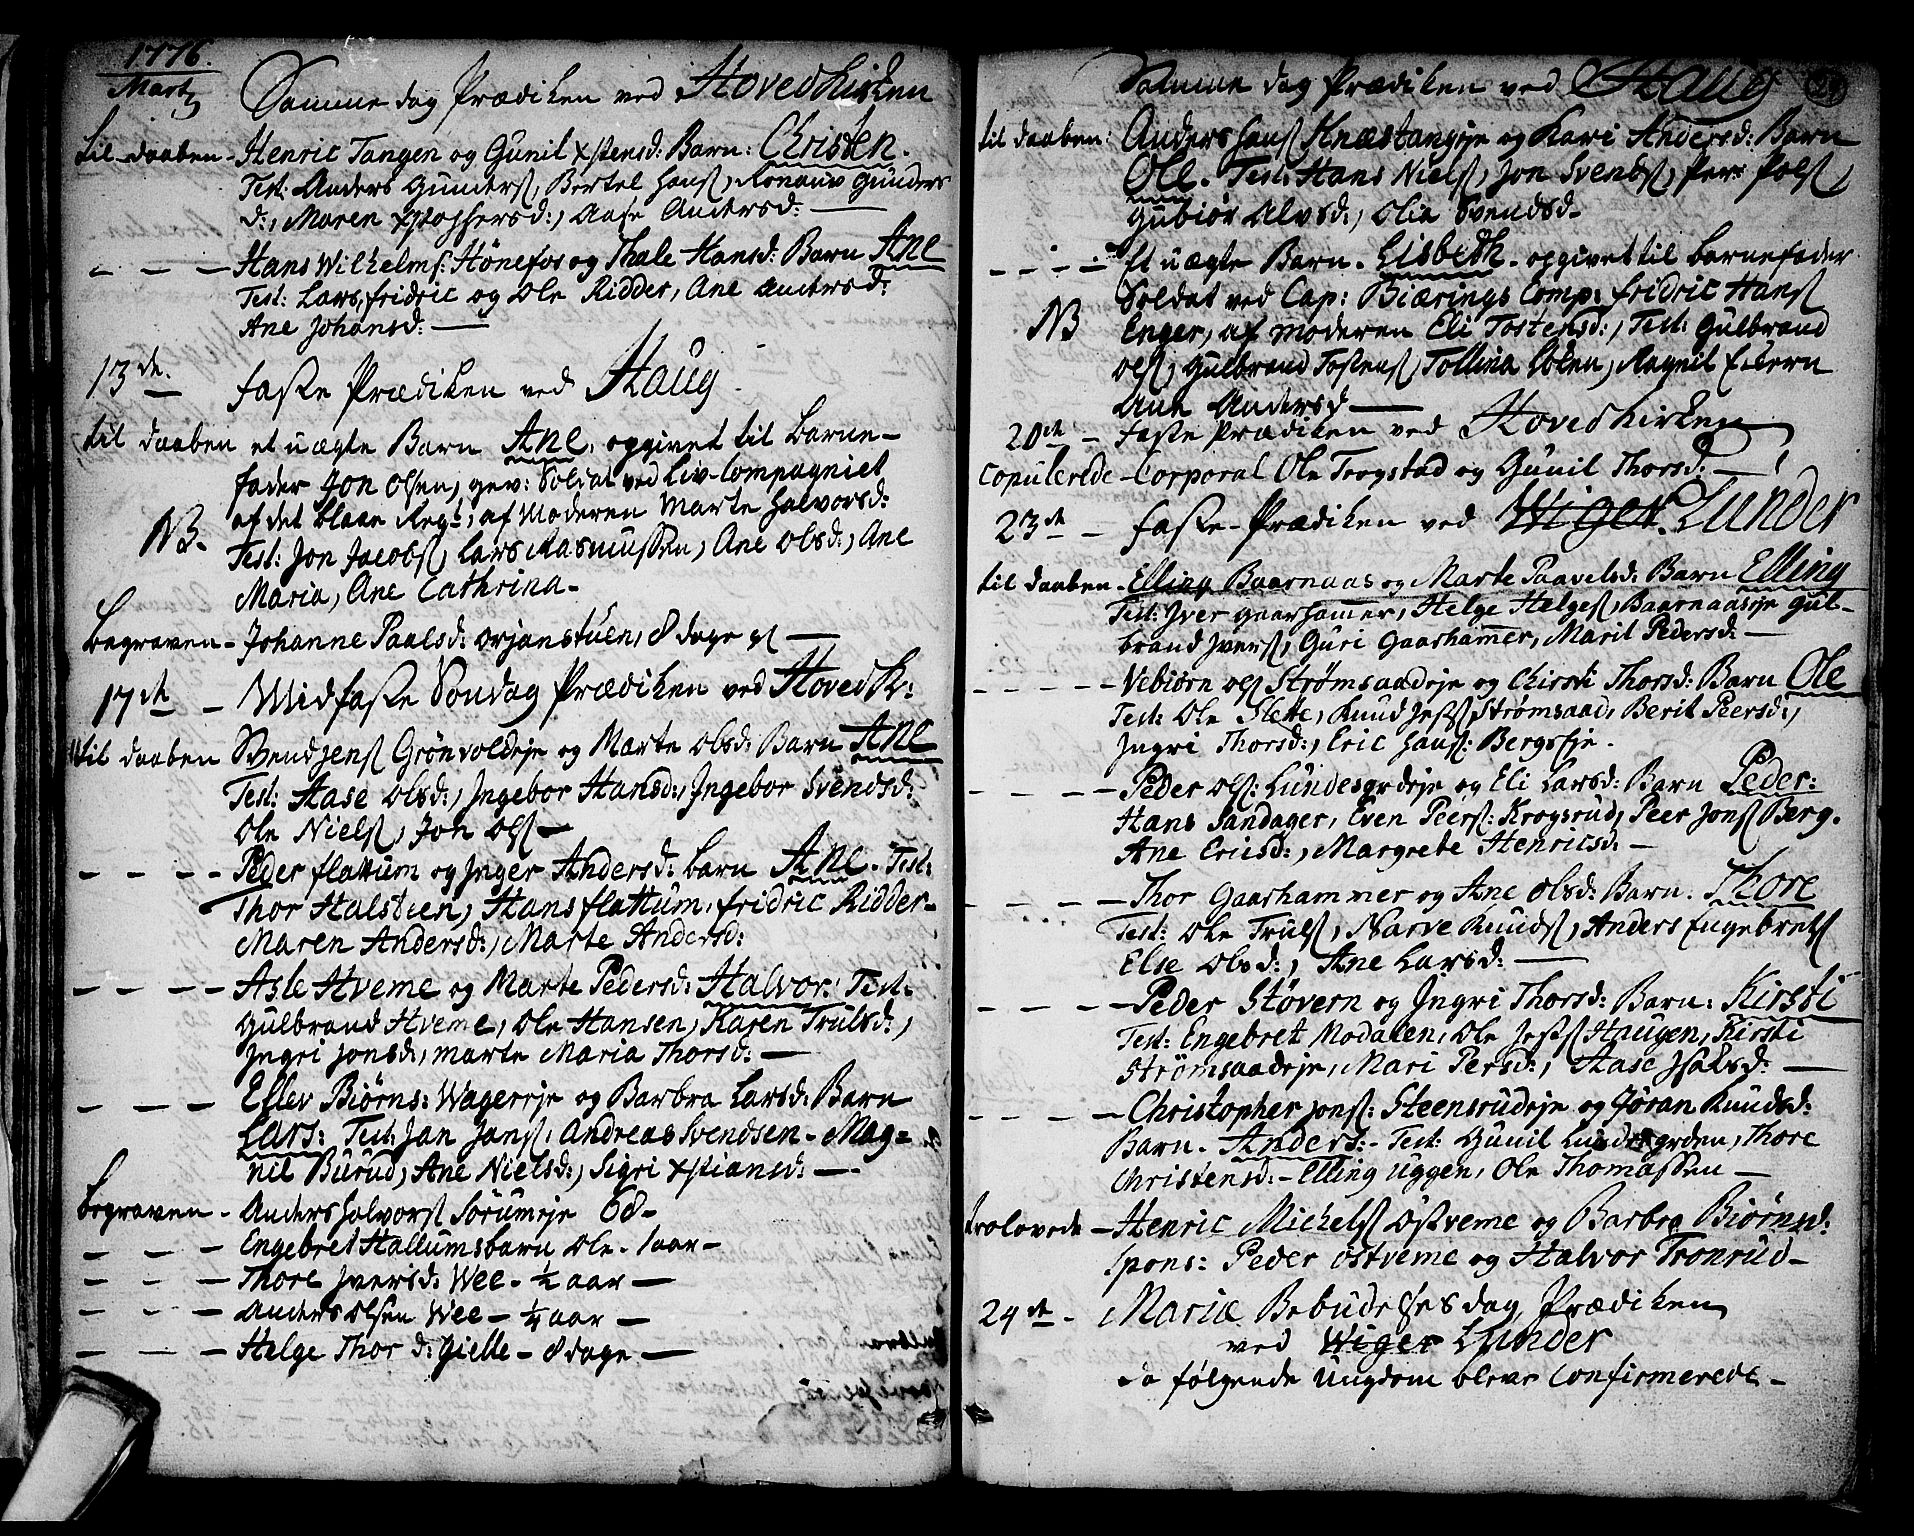 1776.
Martz
Samme dag Prædiken ved Hovedkirken
til daaben - Henric Tangen og Gunil Xstensd: Barn: Christen.
Test: Anders Gunders, Bertel Hans, Ronauv Gunders
d:, Maren Xstophersd:, Aase Andersd: —
- - - Hans Wilhelms: Hønefos og Thale Hansd: Barn Ane
Test: Lars, fridric og Ole Ridder, Ane Andersd:
Ane Johansd: —
13de — faste Prædiken ved Haug.
til daaben et uægte Barn Ane, opgivet til barne-
fader Jon Olsen, gev: Soldat ved Liv-Compagniet
af det blaae Regt:, af Moderen Marte Halvorsd:
NB. Test: Jon Jacobs, Lars Rasmussen, Ane Olsd:, Ane
Maria, Ane Cathrina -
begraven - Johanne Paalsd: Orjanstuen, 8 dage gl —
17de - Midfaste Søndag Prædiken ved Hoved K:
til daaben Svend Jens Grønvoldeje og Marte Olsd: Barn Ane
Test: Aase Olsd:, Ingebor Hansd:, Ingebor Svendsd:
Ole Niels, Jon Ols —
- - - Peder flattum og Inger Andersd: barn Ane. Test:
Thor Halstien, Hans flattum, fridric Ridder-
Maren Andersd:, Marte Andersd:
- - - Asle Hveme og Marte Pedersd: Halvor: Test:
Gulbrand Hveme, Ole Hansen, Karen Trulsd:,
Ingri Jonsd:, Marte Maria Thorsd: —
- - - Ellev Biørns: Wagereje og Barbra Larsd: Barn
Lars: Test: Jan Jans, Andreas Svendsen - Mag-
nil Burud, Ane Nielsd:, Sigri Xstiansd: —
begraven - Anders Halvors Sørumeje 68 -
- - - Engebret Hallums barn Ole - 1 aar -
- - - Thore Iversd: Wee - ½ aar —
- - - Anders Olsen Wee - ¼ aar —
- - - Helge Thors d: Gielle - 8 dage —
Samme dag Prædiken ved Haug
til daaben: Anders Hans Knæstangeje og Kari Andersd: Barn
Ole. Test: Hans Niels, Jon Svends, Per Pols,
Gubiør Alvsd:, Olia Svendsd -
- - - - Et uægte Barn. Lisbeth - opgivet til barnefader
Soldat ved Cap: Biærings Comp: fridric Hans
NB Enger, af moderen Eli Tostensd:, Test: Gulbrand
Ols, Gulbrand Tostens, Tollina Loken, Ragnil
Ane Andersd —
20de - faste Prædiken ved Hovedkirken
Copulerede - Corporal Ole Trogstad og Gunil Thorsd. —
23de - faste-Prædiken ved Wiger Lunder
til daaben - Elling Baarnaas og Marte Paavelsd: Barn Elling
Test: Iver Gaarhamer, Helge Helges, Baarnaaseje Gul-
brand Ivers, Guri Gaarhamer, Marit Pedersd: —
- - - - - Vebiørn Ols Strømsaadeje og Chirsti Thorsd: Barn Ole
Test: Ole Slette, Knud Strømsaad, Berit Peersd:,
Ingri Thorsd:, Eric Hans: Bergseje.
- - - - Peder Ols: Lundesgrdeje og Eli Larsd: Barn Peder:
Hans Sandager, Even Peers: Krogsrud, Peer Jons Berg.
Ane Ericsd:, Margrete Henricsd: -
- - - - Thor Gaarhammer og Ane Olsd: Barn. Thore
Test: Ole Truls, Narve Knuds, Anders Engebrets
Else Olsd:, Ane Larsd: —
- - - - Peder Støvern og Ingri Thorsd: Barn: Kirsti
Test: Engebret Modalen, Ole Haugen, Kirsti
Strømsaadeje, Mari Persd:, Aase Isaksd: —
- - - - Christopher Jons: Steensrudeje og Jøran Knudsd:
Barn. Anders: - Test: Gunil Lundesgrden, Thore
Christensd: - Elling Uggen, Ole Thomassen —
trolovede - Henric Michels Østveme og Barbra Biørnsd:
spons: Peder Østveme og Halvor Tronrud -
24de - Mariæ Bebudelses dag Prædiken
ved Wiger Lunder
da følgende Ungdom bleve Confirmerede -